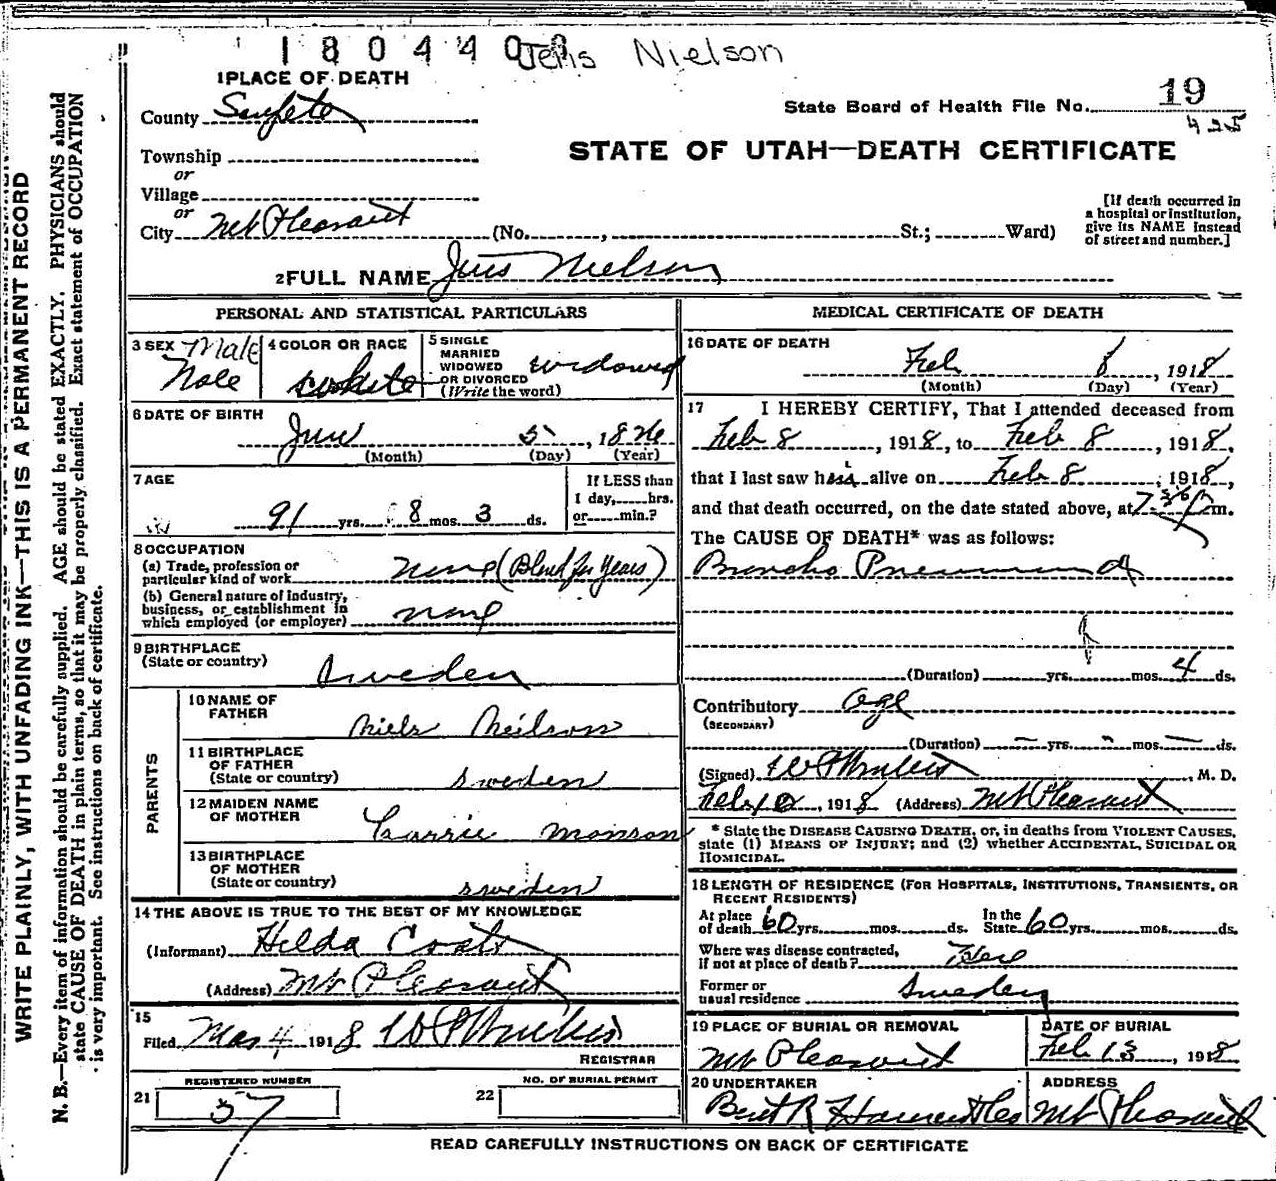 1804408
Jens Nielson
1 PLACE OF DEATH
State Board of Health File No. 19
425
County Sanpete
STATE OF UTAH—DEATH CERTIFICATE
Township
or
Village
or
City Mt Pleasant (No. , St.; Ward)
[If death occurred in
a hospital or institution,
give its NAME instead
of street and number.]
2 FULL NAME Jens Nielson
PERSONAL AND STATISTICAL PARTICULARS
3 SEX Male
Male
4 COLOR OR RACE
white
5 SINGLE
MARRIED
WIDOWED
OR DIVORCED
(Write the word)
widowed
6 DATE OF BIRTH
June 5, 1826
(Month) (Day) (Year)
7 AGE
91 yrs. 8 mos. 3 ds.
If LESS than
1 day, hrs.
or min.?
8 OCCUPATION
(a) Trade, profession or
particular kind of work none (Blind for years)
(b) General nature of industry,
business, or establishment in
which employed (or employer) none
9 BIRTHPLACE
(State or country) Sweden
PARENTS
10 NAME OF
FATHER Niels Neilson
11 BIRTHPLACE
OF FATHER
(State or country) Sweden
12 MAIDEN NAME
OF MOTHER Carrie Monson
13 BIRTHPLACE
OF MOTHER
(State or country) Sweden
14 THE ABOVE IS TRUE TO THE BEST OF MY KNOWLEDGE
(Informant) Hilda Coats
(Address) Mt Pleasant
15
Filed Mar 4 1918
REGISTRAR
21 REGISTERED NUMBER
57
22 NO. OF BURIAL PERMIT
MEDICAL CERTIFICATE OF DEATH
16 DATE OF DEATH
Feb 8, 1918
(Month) (Day) (Year)
17 I HEREBY CERTIFY, That I attended deceased from
Feb 8, 1918, to Feb 8, 1918,
that I last saw him alive on Feb 8, 1918,
and that death occurred, on the date stated above, at 7 30 P m.
The CAUSE OF DEATH* was as follows:
Broncho Pneumonia
(Duration) yrs. mos. 4 ds.
Contributory age
(SECONDARY)
(Duration) – yrs. – mos. – ds.
(Signed) M. D.
Feb 10, 1918 (Address) Mt Pleasant
* State the DISEASE CAUSING DEATH, or, in deaths from VIOLENT CAUSES,
state (1) MEANS OF INJURY; and (2) whether ACCIDENTAL, SUICIDAL OR
HOMICIDAL.
18 LENGTH OF RESIDENCE (FOR HOSPITALS, INSTITUTIONS, TRANSIENTS, OR
RECENT RESIDENTS)
At place
of death 60 yrs. mos. ds.
In the
State 60 yrs. mos. ds.
Where was disease contracted,
if not at place of death? Here
Former or
usual residence Sweden
19 PLACE OF BURIAL OR REMOVAL
Mt Pleasant
DATE OF BURIAL
Feb 13, 1918
20 UNDERTAKER
R
ADDRESS
Mt Pleasant
READ CAREFULLY INSTRUCTIONS ON BACK OF CERTIFICATE
WRITE PLAINLY, WITH UNFADING INK—THIS IS A PERMANENT RECORD
N. B.—Every item of information should be carefully supplied. AGE should be stated EXACTLY. PHYSICIANS should
state CAUSE OF DEATH in plain terms, so that it may be properly classified. Exact statement of OCCUPATION
is very important. See instructions on back of certificate.